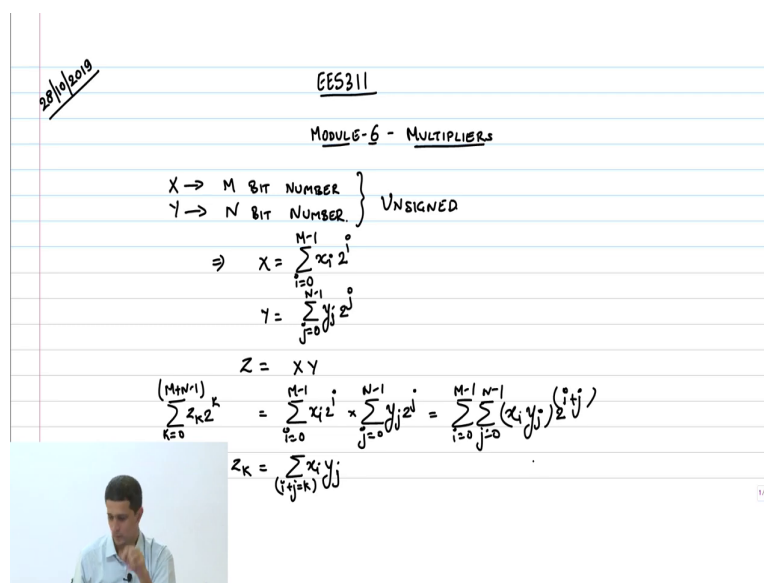 28/10/2019
EE5311
MODULE-6 - MULTIPLIERS
X → M BIT NUMBER
Y → N BIT NUMBER. } UNSIGNED
⇒ X = ∑_{i=0}^{M-1} x_i 2^i
Y = ∑_{j=0}^{N-1} y_j 2^j
Z = XY
∑_{K=0}^{(M+N-1)} z_K 2^K = ∑_{i=0}^{M-1} x_i 2^i × ∑_{j=0}^{N-1} y_j 2^j = ∑_{i=0}^{M-1} ∑_{j=0}^{N-1} (x_i y_j) 2^{(i+j)}
z_K = ∑_{(i+j=K)} x_i y_j